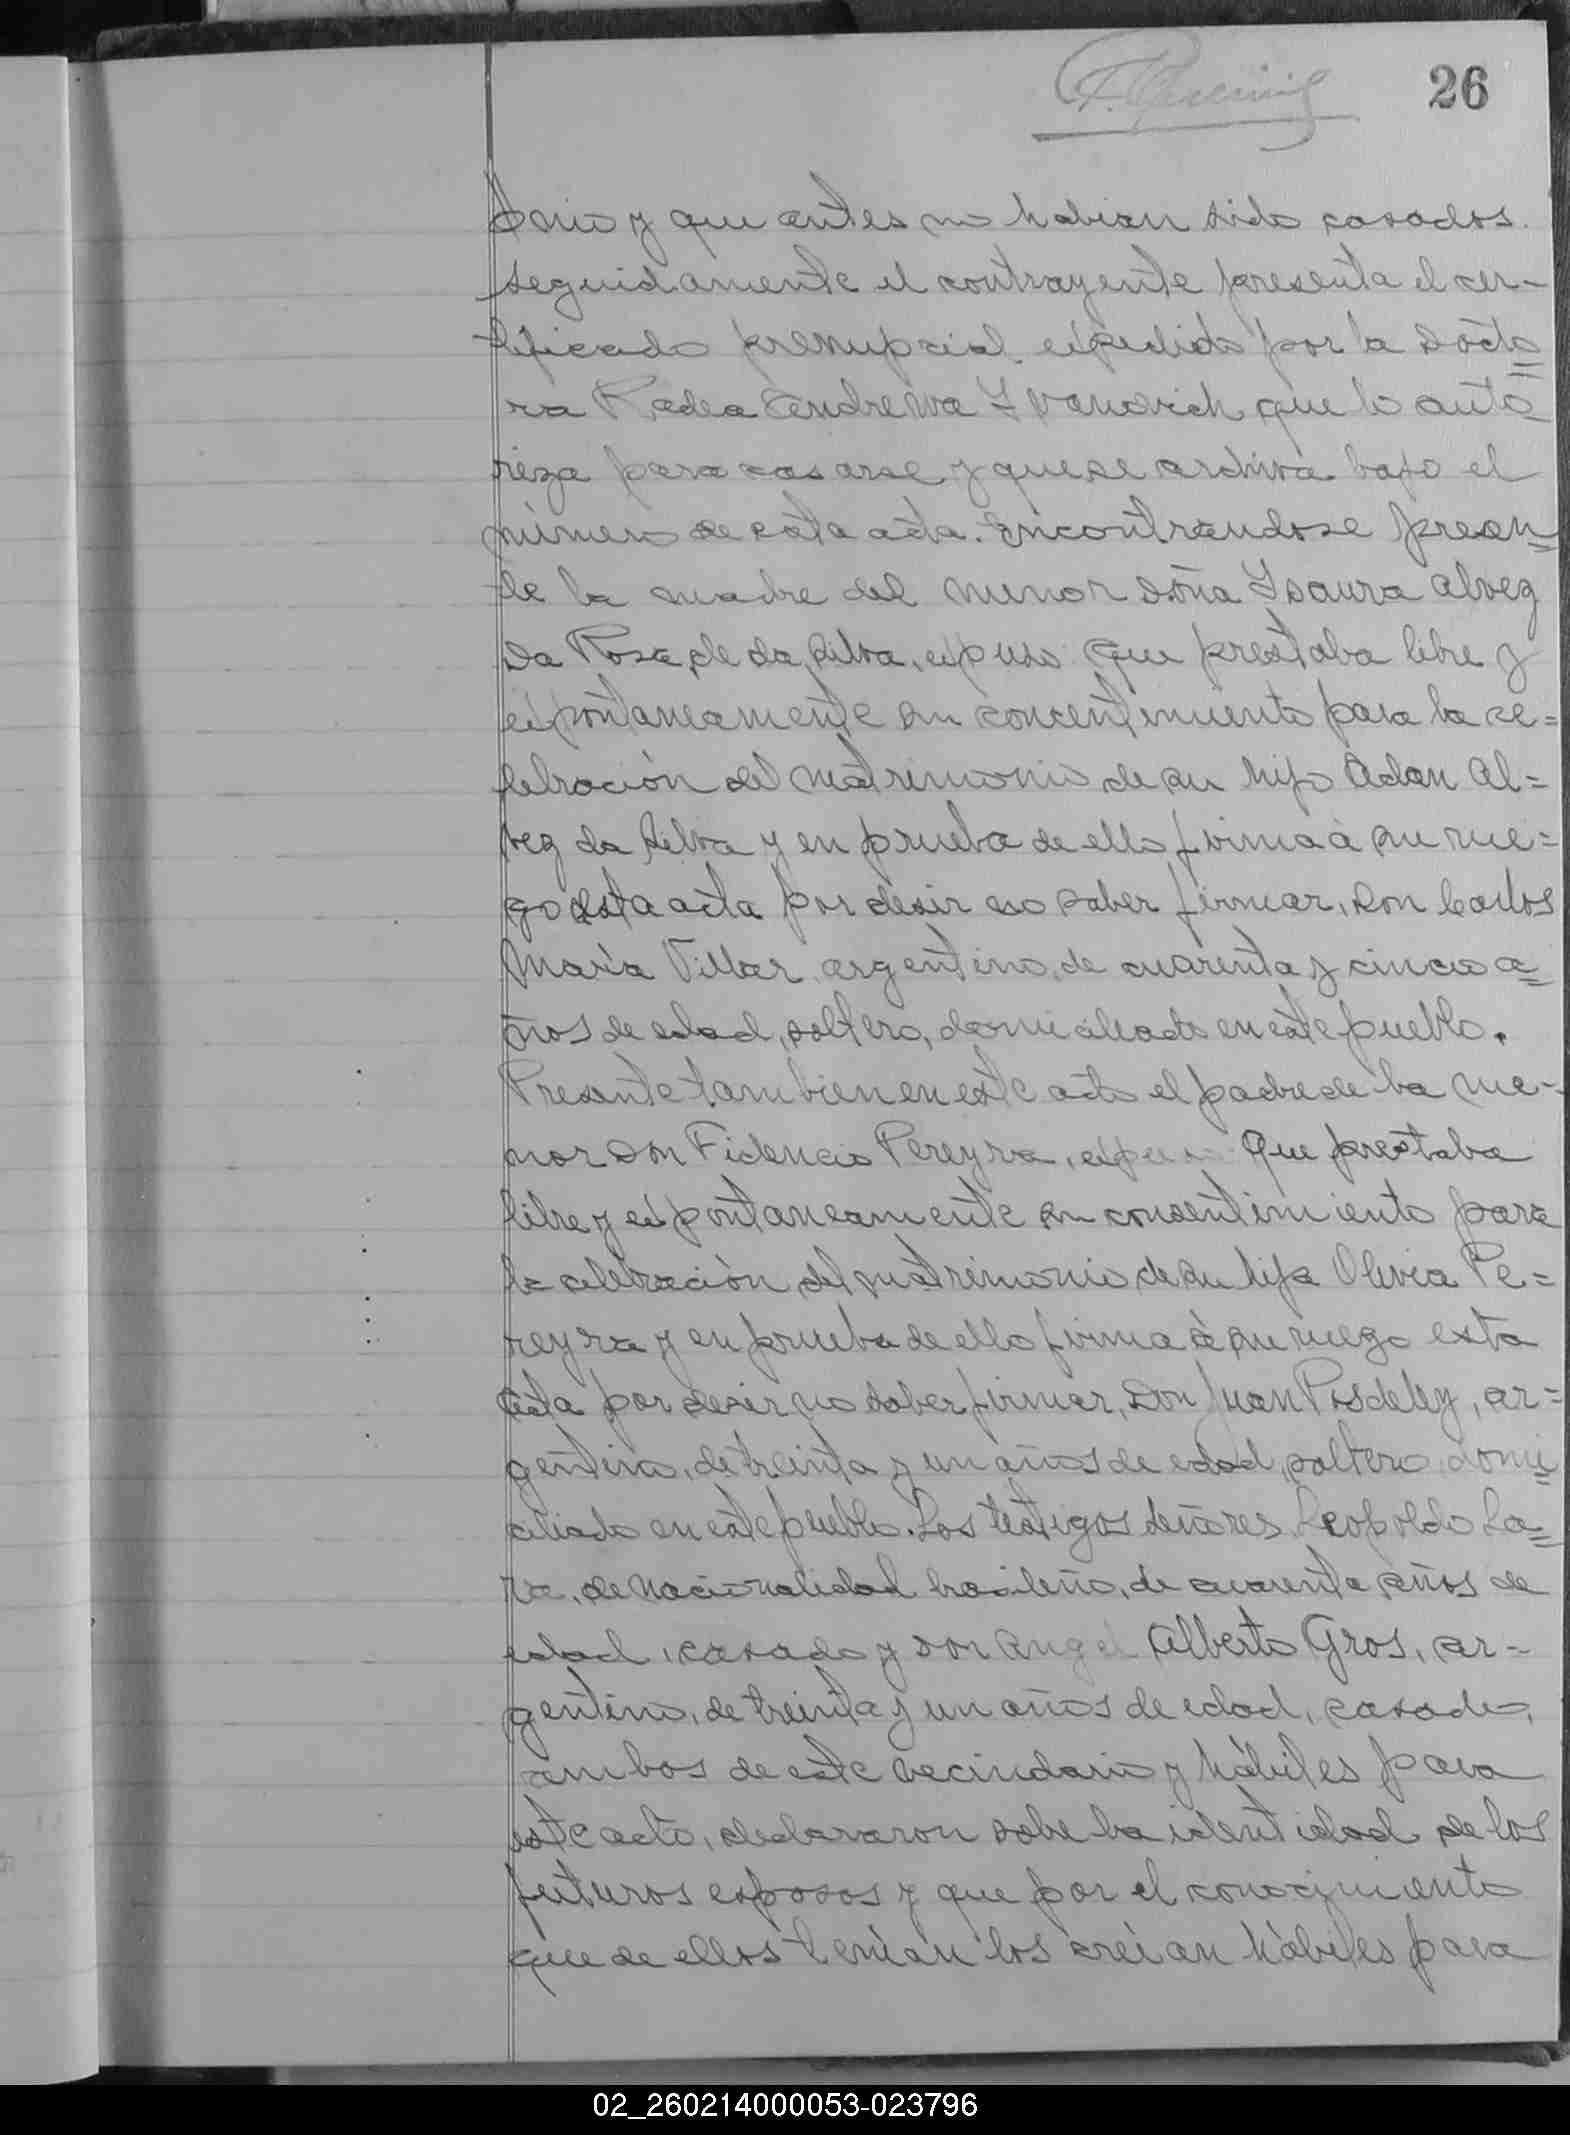 26
onio y que antes no habian sido casados.
Seguidamente el contrayente presenta el cer-
tificado prenupcial expedido por la Docto
ra Radea Andrewa Ivanovich que lo auto
riza para casarse y que se archiva bajo el
número de esta acta. Encontrandose presen
te la madre del menor Doña Isaura Alvez
Da Rosa de da Silva, expuso: Que prestaba libre y
expontaneamente su concentimiento para la ce=
lebración del matrimonio de su hijo Adan Al=
vez da Silva y en prueba de ello firma á su rue=
go esta acta por desir no saber firmar, Don Carlos
María Villar argentino, de cuarenta y cinco a
ños de edad, soltero, domiciliado en este pueblo.
Presente tambien en este acto el padre de la me-
nor Don Fidencio Pereyra, expuso: Que prestaba
libre y expontaneamente su consentimiento para
la celebración del matrimonio de su hija Olivia Pe=
reyra y en prueba de ello firma á su ruego esta
acta por desir no saber firmar, Don Juan Posdeley, ar=
gentino, de treinta y un años de edad, soltero, domi
ciliado en este pueblo. Los testigos señores Leopoldo La
ra, de nacionalidad brasileño, de cuarenta años de
edad, casado y Don Angel Alberto Gros, ar-
gentino, de treinta y un años de edad, casado,
ambos de este vecindario y hábiles para
este acto, declararon sobe la identidad de los
futuros esposos y que por el conocimiento
que de ellos tenian los creían hábiles para
02_260214000053-023796